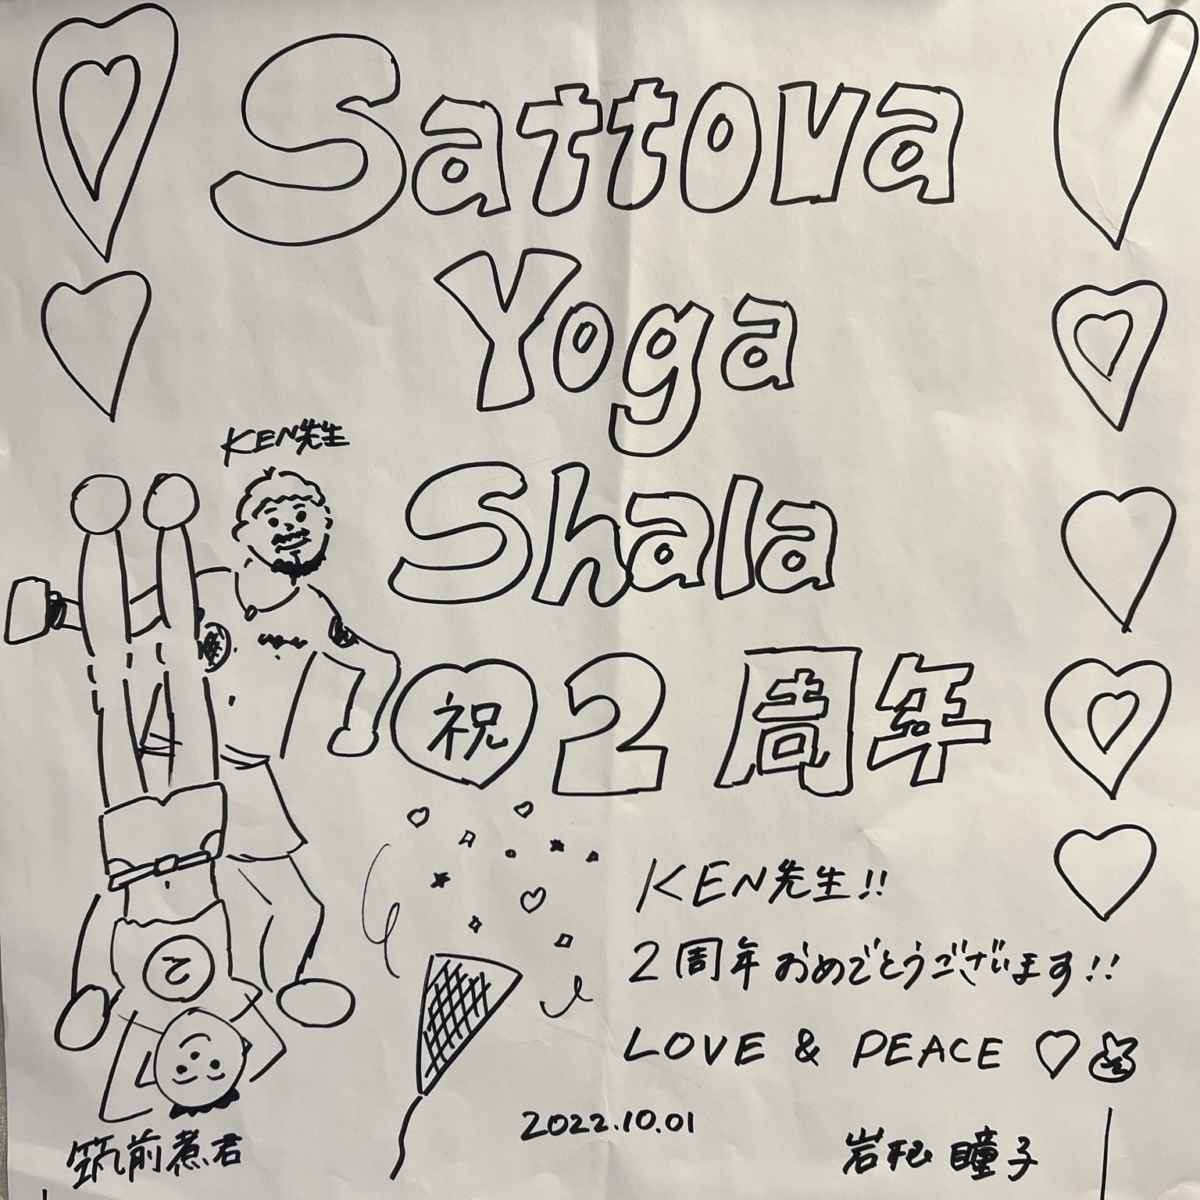 Sattova
Yoga
Shala
祝 2周年
KEN先生
2
KEN先生!!
2周年おめでとうございます!!
LOVE & PEACE
2022.10.01
筑前煮君
岩松 瞳子